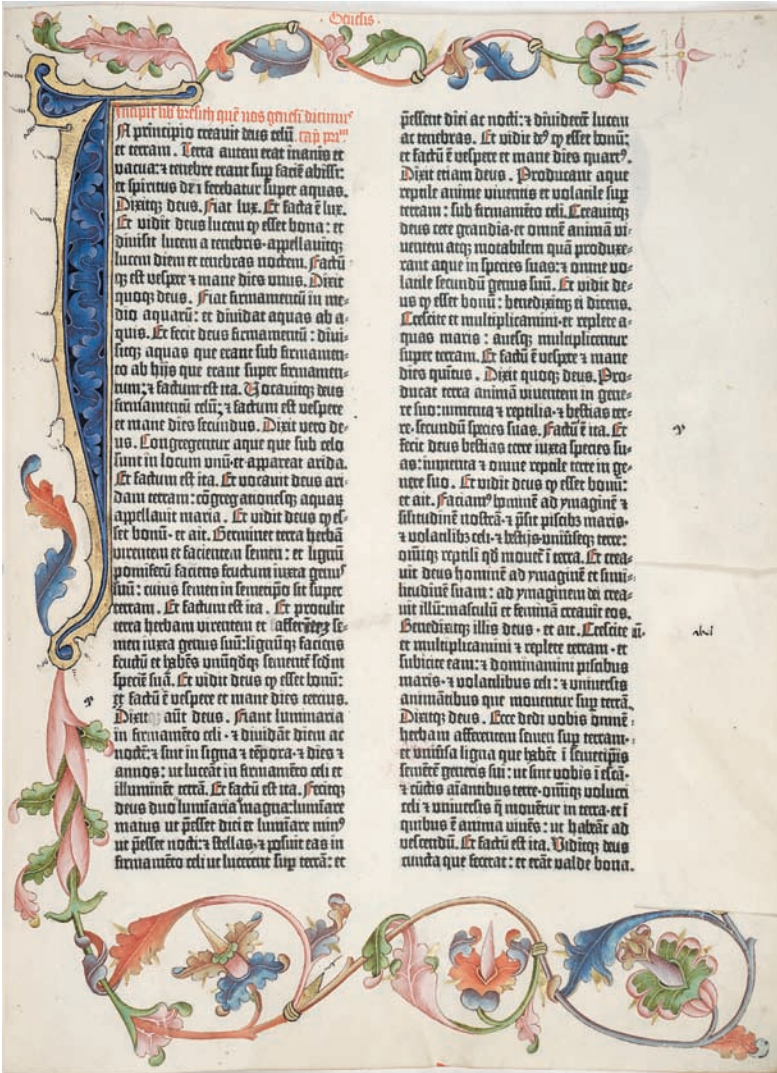 · Genesis ·
Incipit lib̃ bresith quē nos genesī dicimꝰ
IN principio creauit deus celū cap̄ prīm
et terram. Terra autem erat inanis et
vacua: ⁊ tenebre erant sup̄ faciē abissi:
et spiritus dei ferebatur super aquas.
Dixitqꝫ deus. Fiat lux. Et facta ē lux.
Et vidit deus lucem ꝙ esset bona: et
diuisit lucem a tenebris · appellauitqꝫ
lucem diem et tenebras noctem. Factū
qꝫ est vespere ⁊ mane dies unus. Dixit
quoqꝫ deus. Fiat firmamentū in me-
dio aquarū: et diuidat aquas ab a-
quis. Et fecit deus firmamentū: diui-
sitqꝫ aquas que erant sub firmamen-
to ab hijs que erant super firmamen-
tum: ⁊ factum est ita. Vocauitqꝫ deus
firmamentū celū: ⁊ factum est vespere
et mane dies secundus. Dixit vero de-
us. Congregentur aque que sub celo
sunt in locum unū · et appareat arida.
Et factum est ita. Et vocauit deus ari-
dam terram: cōgreg ationesqꝫ aquaꝝ
appellauit maria. Et vidit deus ꝙ es-
set bonū · et ait. Germinet terra herbā
virentem et facientem semen: et lignū
pomiferū faciens fructum iuxta genꝰ
suū: cuius semen in semetipso sit super
terram. Et factum est ita. Et protulit
terra herbam virentem et se-
men iuxta genus suū: lignūqꝫ faciens
fructū et habēs unūqdqꝫ sementē scdm
speciē suā. Et vidit deus ꝙ esset bonū:
et factū ē vespere et mane dies tercius.
Dixit aūt deus. Fiant luminaria
in firmamēto celi · ⁊ diuidāt diem ac
noctē: ⁊ sint in signa ⁊ tēpora · ⁊ dies ⁊
annos: ut luceāt in firmamēto celi et
illuminēt terrā. Et factū est ita. Fecitqꝫ
deus duo luminaria magna: luminare
maius ut p̄esset diei et luminare minꝰ
ut p̄esset nocti: ⁊ stellas, ⁊ posuit eas in
firmamēto celi ut lucerent sup̄ terrā: et
p̄essent diei ac nocti: ⁊ diuiderēt lucem
ac tenebras. Et vidit deꝰ ꝙ esset bonū:
et factū ē vespere et mane dies quartꝰ.
Dixit etiam deus. Producant aque
reptile anime viuentis et volatile sup̄
terram: sub firmamēto celi. Creauitqꝫ
deus cete grandia · et omnē animā vi-
uentem atqꝫ motabilem quā produxe-
rant aque in species suas: ⁊ omne vo-
latile secundū genus suū. Et vidit de-
us ꝙ esset bonū: benedixitqꝫ ei dicens.
Crescite et multiplicamini · et replete a-
quas maris: auesqꝫ multiplicentur
super terram. Et factū ē vespere ⁊ mane
dies quintus. Dixit quoqꝫ deus. Pro-
ducat terra animā viuentem in gene-
re suo: iumenta ⁊ reptilia · ⁊ bestias ter-
re · secundū species suas. Factū ē ita. Et
fecit deus bestias terre iuxta species su-
as: iumenta ⁊ omne reptile terre in ge-
nere suo. Et vidit deus ꝙ esset bonū:
et ait. Faciamꝰ hominē ad ymaginē ⁊
similitudinē nostrā · ⁊ p̄sit piscibꝫ maris ·
⁊ volatilibꝫ celi · ⁊ bestijs · uniuseqꝫ terre:
omniqꝫ reptili qd mouet ī terra. Et crea-
uit deus hominē ad ymaginē et simi-
litudinē suam: ad ymaginem dei crea-
uit illū: masculū et feminā creauit eos.
Benedixitqꝫ illis deus · et ait. Crescite
et multiplicamini ⁊ replete terram · et
subicite eam: ⁊ dominamini piscibus
maris · ⁊ volatilibus celi: ⁊ uniuersis
animātibus que mouentur sup̄ terrā.
Dixitqꝫ deus. Ecce dedi vobis omnē
herbam afferentem semen sup̄ terram ·
et uniūsa ligna que habēt ī semetipis
semētē generis sui: ut sint vobis ī escā ·
⁊ cūctis aīantibus terre · omniqꝫ volucri
celi ⁊ uniuersis q̄ mouētur in terra · et ī
quibus ē anima viuēs: ut habeāt ad
vescendū. Et factū est ita. Viditqꝫ deus
cuncta que fecerat: et erāt valde bona.